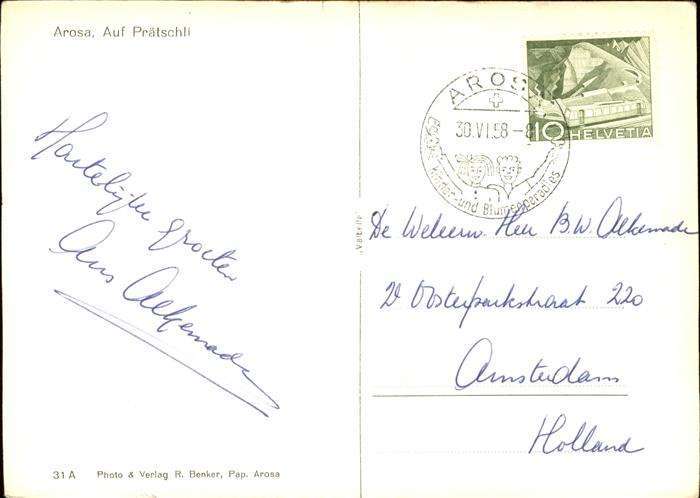 Arosa, Auf Prätschli
HELVETIA
10
AROSA
30.VI.58-8
Kinder- und Blumenparadies
Hartelijke groeten
Ans Alkemade
De Weleerw. Heer B.W. Alkemade
2e Oosterparkstraat 220
Amsterdam
Holland
31 A Photo & Verlag R. Benker, Pap. Arosa